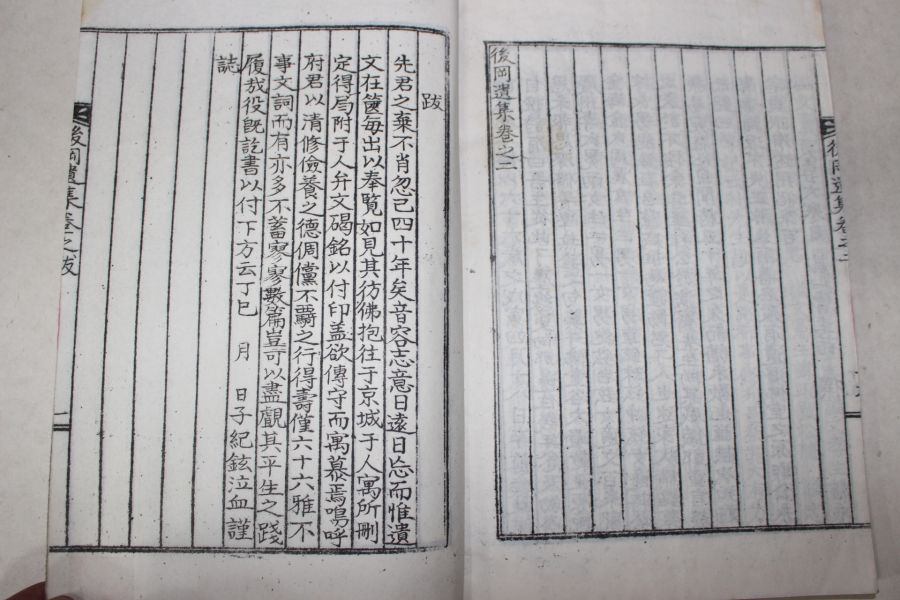 後岡遺集卷之三
後岡遺集卷之二
跋
先君之棄不肖忽已四十年矣音容志意日遠日忘而惟遺
文在篋每出以奉覽如見其彷彿抱往于京城于人寓所刪
定得局附于人弁文碣銘以付印盖欲傳守而寓慕焉嗚呼
府君以清修儉養之德倜儻不羈之行得壽僅六十六雅不
事文詞而有亦多不蓄寥寥數篇豈可以盡覰其平生之踐
履哉役旣訖書以付下方云丁巳 月 日子紀鉉泣血謹
誌
後岡遺集卷之跋
一